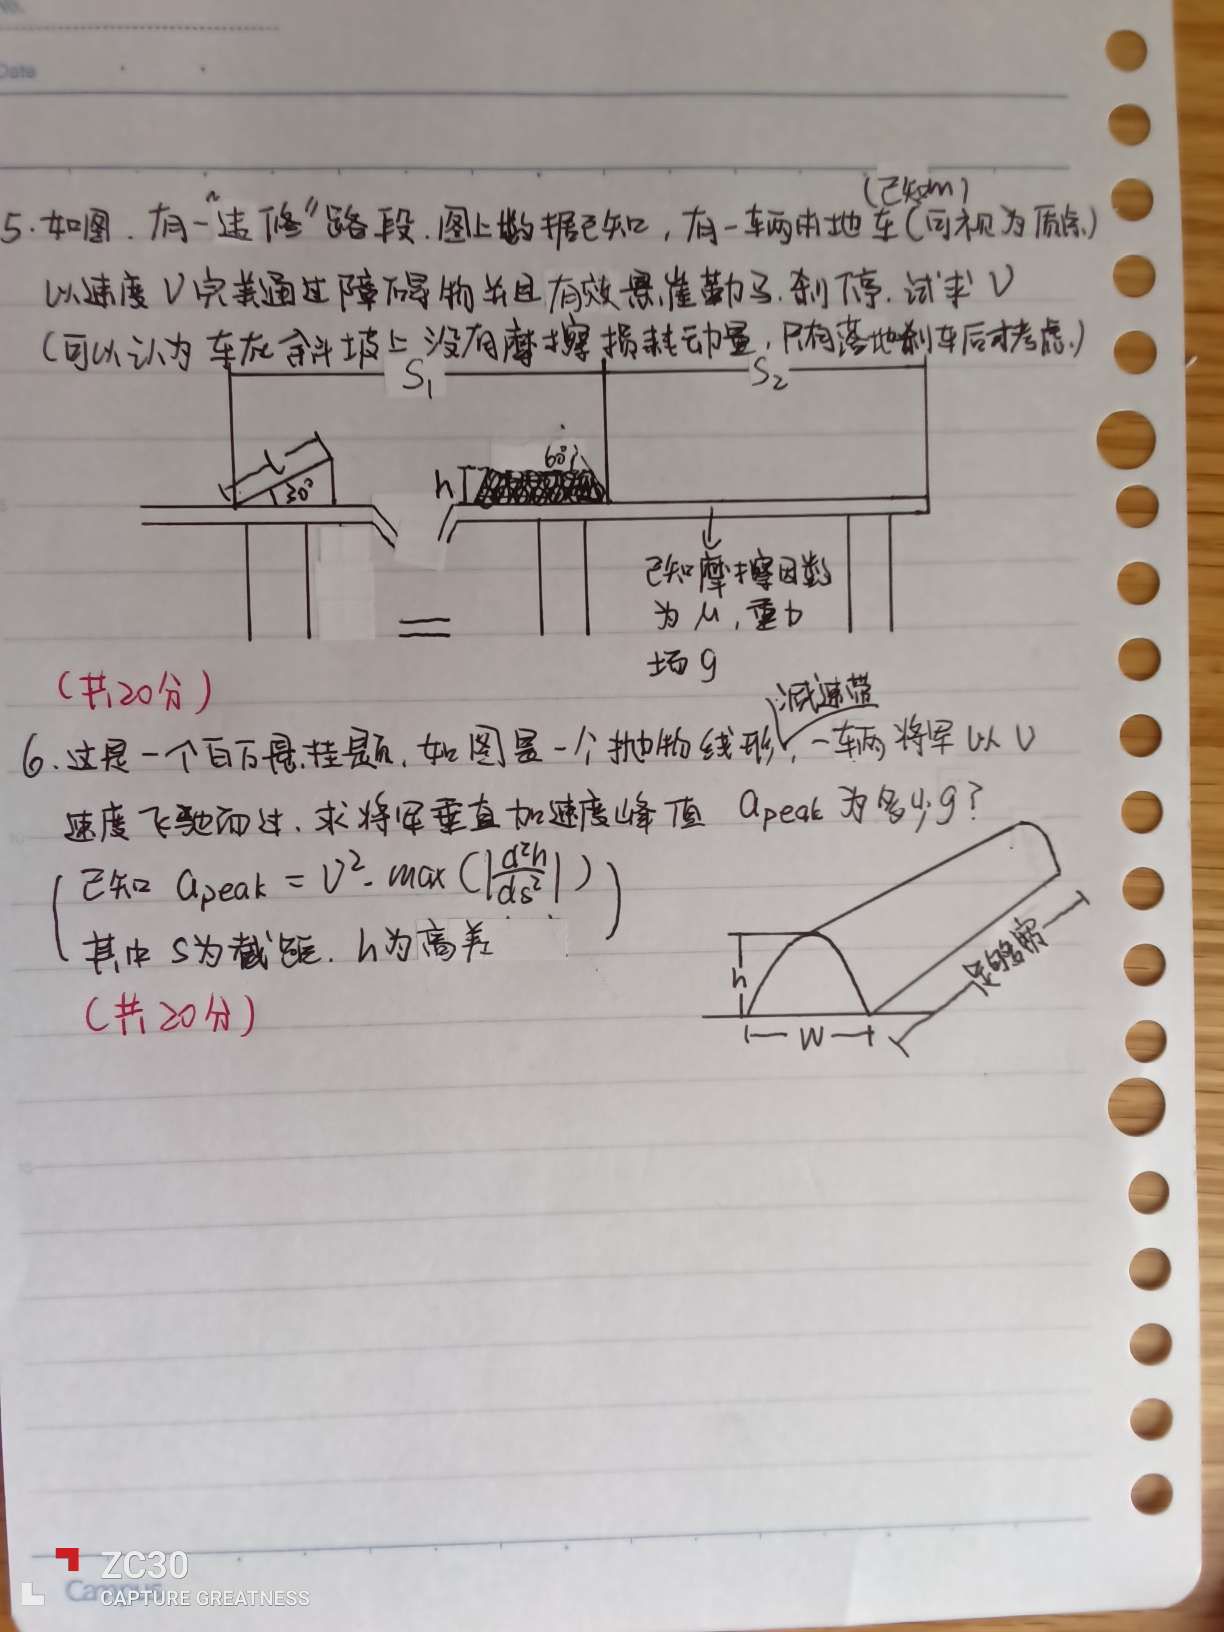 No.
Date
(已知m)
5.如图.有一"速修"路段.图上数据已知,有一车两本地车(可视为质点)
以速度V完美通过障碍物并且有效悬崖勒马.刹停.试求V
(可以认为车在斜坡上没有摩擦损耗动量,只有落地刹车后才考虑.)
S₁ S₂
L 30° h 60°
已知摩擦因数
为μ,重力
场g
(共20分)
减速带
6.这是一个百万悬挂题.如图是一个抛物线形,一车两将军以V
速度飞驰而过.求将军垂直加速度峰值 apeak为多少g?
(已知 apeak = V²·max(|d²h/ds²|)
其中S为截距.h为高差)
(共20分)
h
W
足够宽
ZC30
Campus
CAPTURE GREATNESS